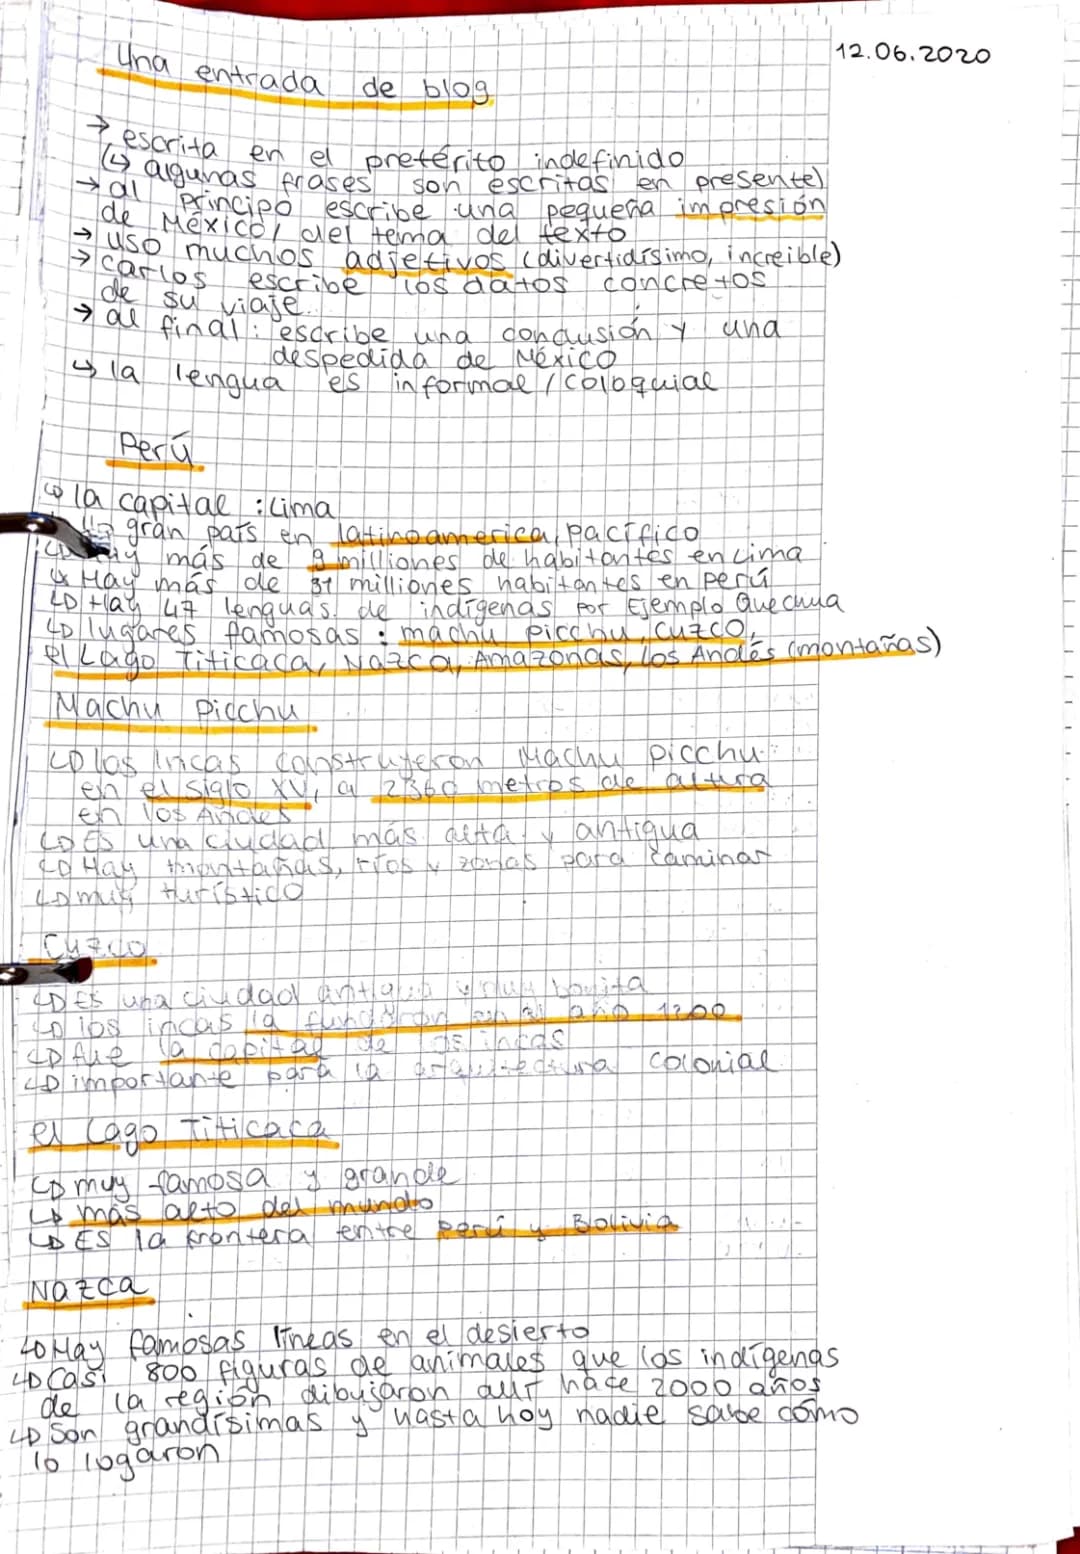 12.06.2020
Una entrada de blog
→ escrita en el pretérito indefinido
(↳ algunas frases son escritas en presente)
→ al principo escribe una pequeña impresión
de México, del tema del texto
→ uso muchos adjetivos (divertidísimo, increible)
→ Carlos escribe los datos concretos
de su viaje.
→ al final: escribe una conclusión y una
despedida de México
↳ la lengua es informal / coloquial
Perú
↳ la capital : Lima
gran país en latinoamerica, pacífico
↳ Hay más de 9 milliones de habitantes en Lima
↳ Hay más de 31 milliones habitantes en perú
↳ Hay 47 lenguas de indígenas por Ejemplo Quechua
↳ lugares famosas : machu picchu, Cuzco,
el Lago Titicaca, Nazca, Amazonas, los Andes (montañas)
Machu picchu
↳ los Incas construyeron Machu picchu
en el siglo XV, a 2360 metros de altura
en los Andes
↳ Es una ciudad más alta y antigua
↳ Hay montañas, ríos y zonas para caminar
↳ muy turístico
Cuzco
↳ Es una ciudad antigua y muy bonita
↳ los incas la fundaron en el año 1200
↳ fue la capital de los incas
↳ importante para la arquitectura colonial
el Lago Titicaca
↳ muy famosa y grande
↳ más alto del mundo
↳ Es la frontera entre Perú y Bolivia
Nazca
↳ Hay famosas líneas en el desierto
↳ Casi 800 figuras de animales que los indígenas
de la región dibujaron allí hace 2000 años
↳ Son grandísimas y hasta hoy nadie sabe cómo
lo logaron